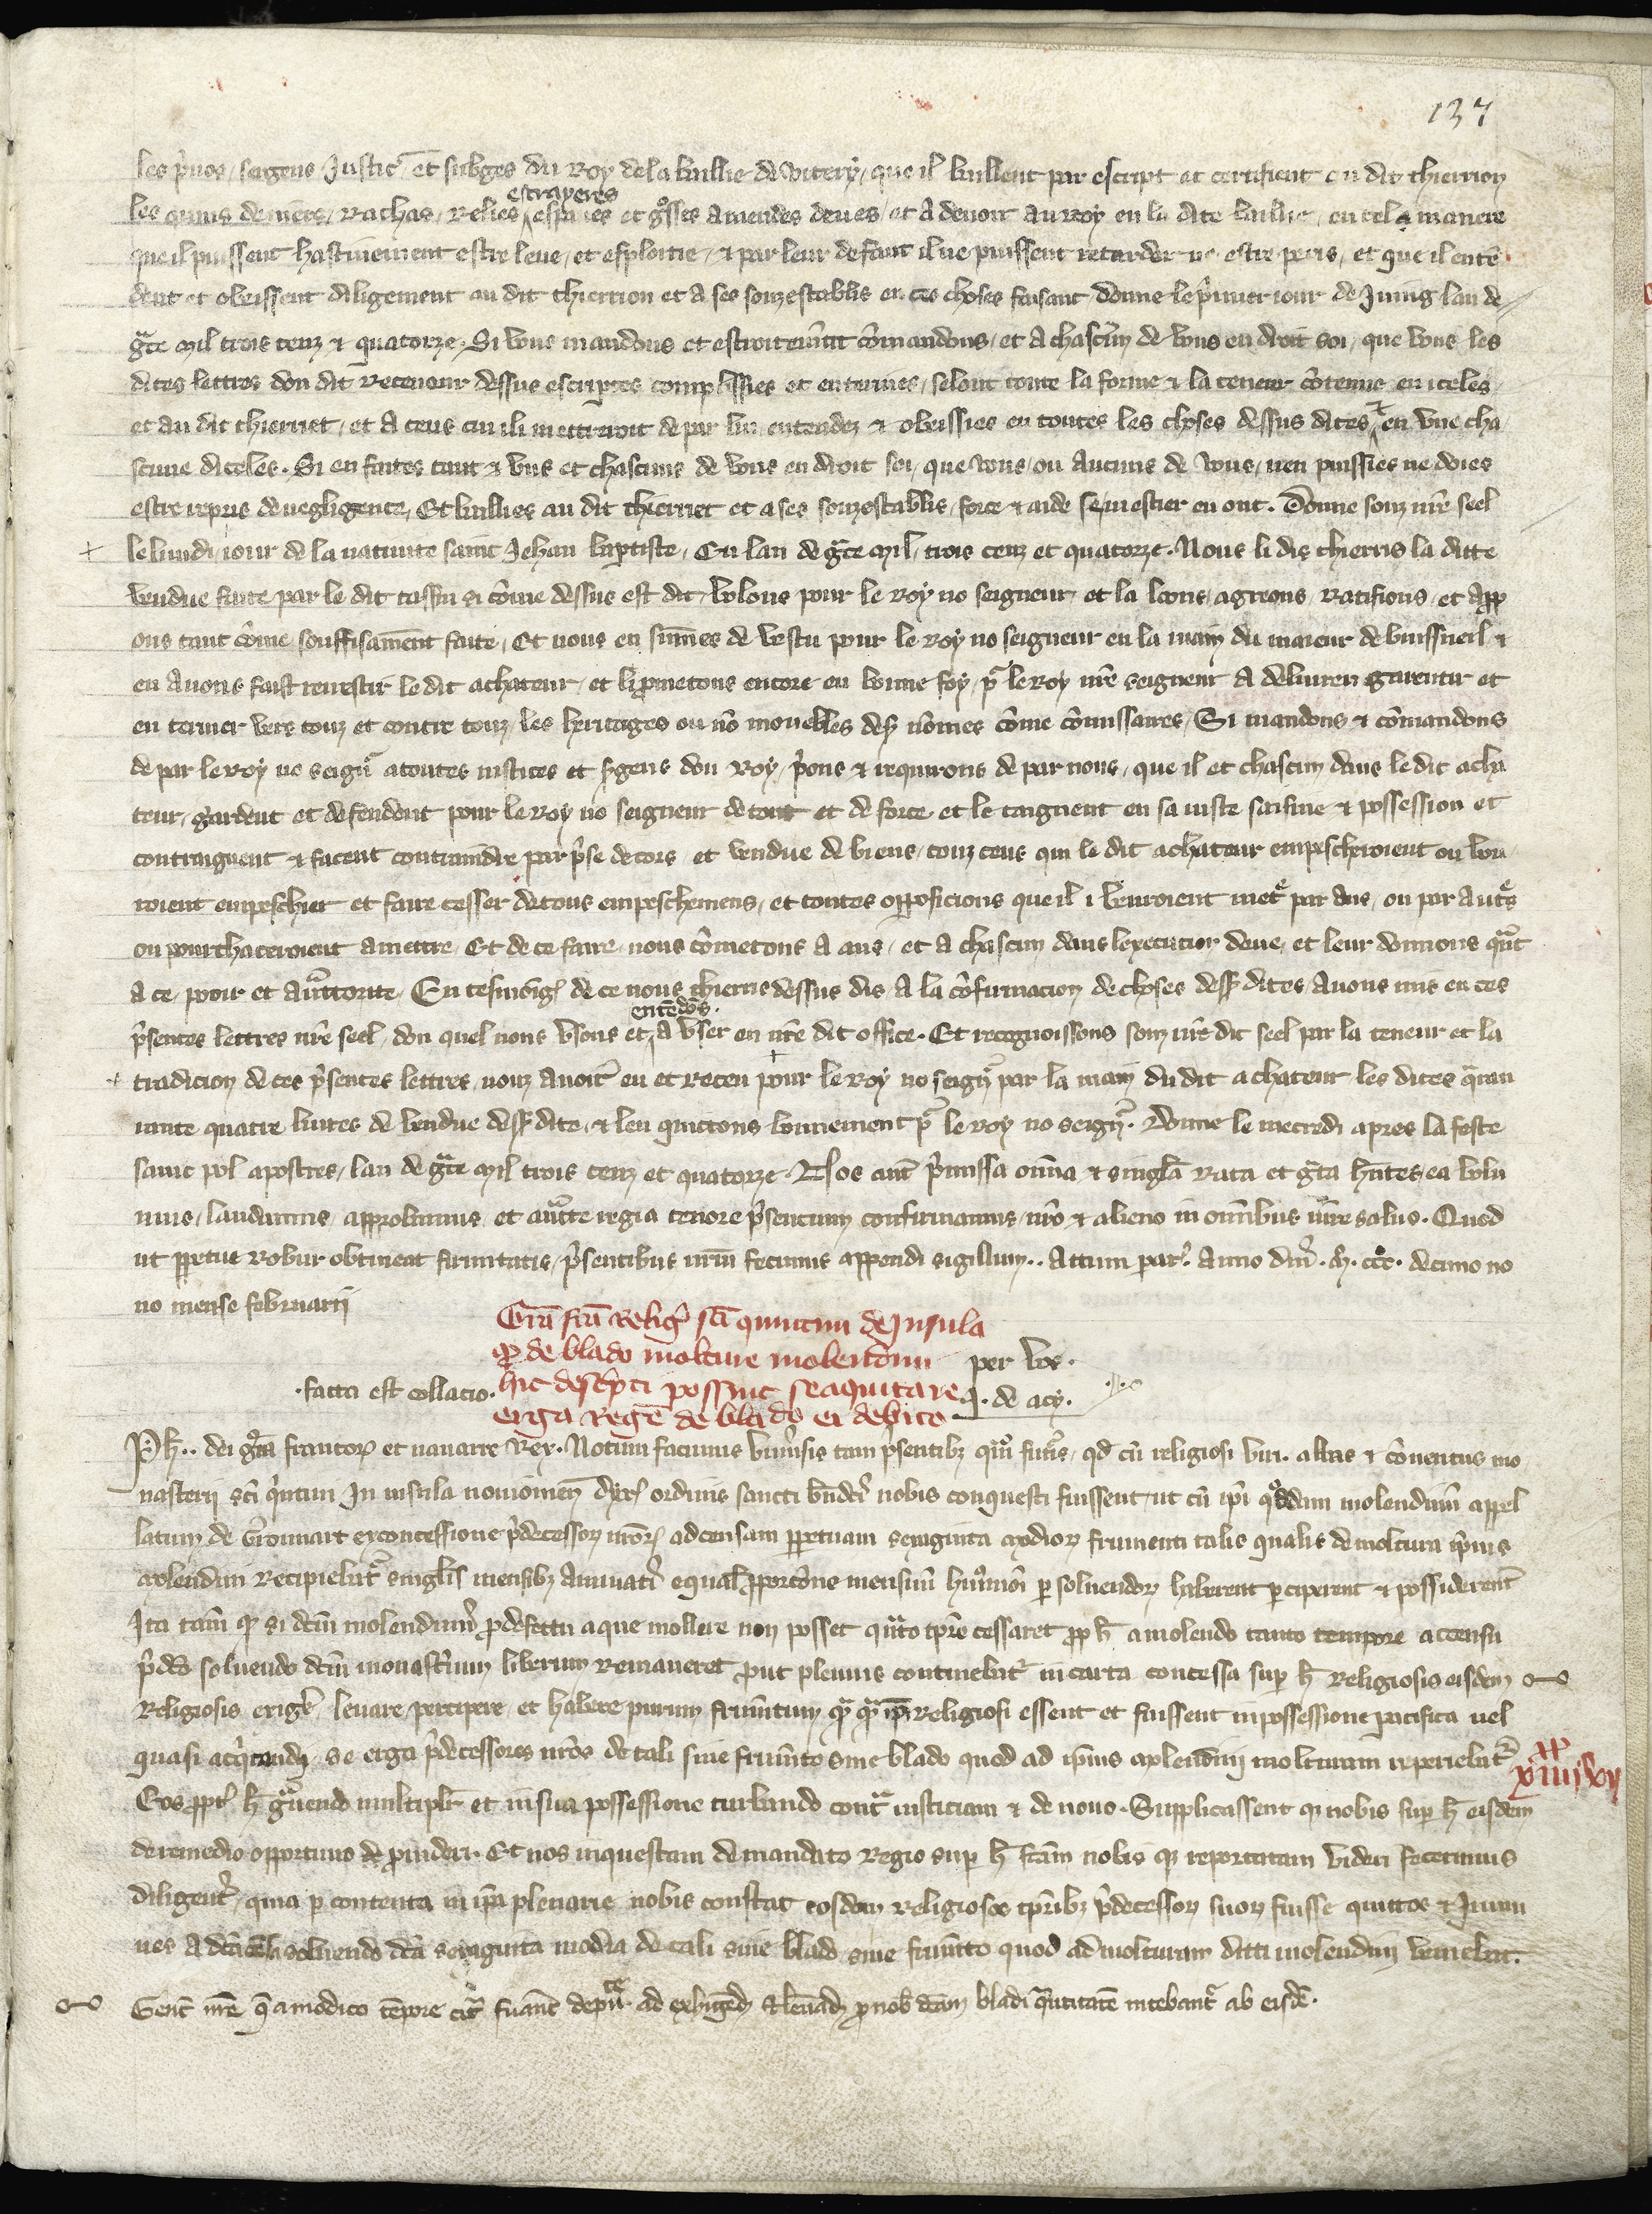 137
les pͥuos, sergens Justic̃ et subges du Roy de la baillie de vitery, que il baillent par escript et certifient au dit thierrion
les quins deniers, Rachas, Relies estrayeres espaues et gͦsses amendes deues, et a deuoir au roy en la dite baillie, en tele maniere
que il puissent hastiuement estre leue, et esploitie, ⁊ par leur defaut il ne puissent retarder ne estre peris, et que il entẽ
dent et obeissent diligement au dit thierrion et a ses souzestablis en ces choses faisant donne le pͥmier iour de Juing lan de
gͣce mil trois cenz ⁊ quatorze. Si vous mandons et estroitemẽt cõmandons, et a chascun de vous en droit soi, que vous les
dites lettres dou dit Receueur dessus escriptes complissies et enterines, selont toute la forme ⁊ la teneur cõtenue en iceles,
et au dit thierriet, et a ceus cui ili mettroit de par lui entendez ⁊ obeissies en toutes les choses dessus dites ⁊ en vne cha
scune diceles. Si en faites tant ⁊ vus et chascuns de vous en droit soi, que vous, ou aucuns de vous, nen puissies ne doies
estre repris de negligence, Et baillies au dit thierriet et a ses souzestablis, force ⁊ aide se mestier en ont. Donne souz nr̃e seel
le lundi, iour de la natiuite saint Jehan baptiste, En lan de gͣce mil, trois cenz et quatorze. Nous li dis thierris la ditte
vendue faite par le dit tassin si cõme dessus est dit, volons pour le roy no seigneur, et la loons, agreons, ratifions, et app
ons tant cõme souffisamẽnt faite, Et nous en sũmes de vestu pour le roy no seigneur en la main du maieur de buissueil ⁊
en auons faist reuestir le dit achateur, et li prometons encore en bonne foy, pͬ le roy nr̃e seigneur a deliurer garentir et
en teriner vers touz et contre touz, les heritages ou nõ mouebles dess̃ nõmes cõme cõmissaires, Si mandons ⁊ cõmandons
de par le roy no seigñ a toutes iustices et sergens dou Roy, pͥons ⁊ requirons de par nous, que il et chascun daus le dit acha
teur, gardent et defendent pour le roy no seigneur de tort et de force et le taignent en sa iuste saisine ⁊ possession et
contraignent ⁊ facent contraindre par pͥse de cors, et vendue de biens, touz ceus qui le dit achateur empescheroient ou vou
roient empeschier et faire cesser de tous empeschemens, et toutes opposicions que il i vouroient metͤ par aus, ou par autͤs
ou pourchaceroient a mettre, Et de ce faire nous cõmetons a aus, et a chascun daus lexecucion deue, et leur donnons qͣnt
a ce, pooir et auctorite. En tesmoing de ce nous thierris dessus dis a la cõfirmacion de choses dess̃ dites, auons mis en ces
pͥsentes lettres nr̃e seel, dou quel nous vsons et entẽdõs a vser en nr̃e dit office. Et recognoissons souz nr̃e dit seel par la teneur et la
tradicion de ces pͥsentes lettres, nouz auoir eu et receu pour le roy no seigñ par la main du dit achateur les dites qͣran
iante quatre liures de vendue dess̃ dite, ⁊ len quittons bonnement pͬ le roy no seigñ. Donne le mecredi apres la feste
saint pol apostres, lan de gͣce mil trois cenz et quatorze. Nos aut̃ pͥmissa om̃ia ⁊ singl̃a rata et gͣta hñtes, ea volu
mus, laudamus, approbamus, et auctͭe regia tenore pͥsentium confirmamus, nr̃o ⁊ alieno in omĩbus iure saluo. Quod
ut ppetue robur obtineat firmitatis, pͥsentibus nr̃m fecimus apponi sigillum.. Actum par̃. Anno dñi. M. ccc. decimo no
no mense februarii
Grã fcã Religͥ sci quintini de Insula
qͦ de blado molture molendini
hic descͥpti possint se aquitare
erga Regẽ de blado ei debito
per vos.
J. de acy.
.facta est collacio.
Ph̃.. dei grã francoꝝ et nauarre Rex. Notum facimus vniũsis tam pͥsentibꝫ qͣm futͥs, qd̃ cũ religiosi viri. abbas ⁊ cõuentus mo
nasterii sci qͥntini In insula nouiomeñ dyoc̃ ordinis sancti bñdcͥ nobis conquesti fuissent, ut cũ ipi qͦddam molendinũ appel
latum de Gronnart ex concessione pͥdecessoꝝ nr̃oꝝ ad censam ppetuam sexaginta modioꝝ frumenti talis qualis de moltura ipius
molendini recipiebatͬ singl̃is mensibꝫ annuatĩ equal̃ proporcõne mensium huiꝰmoi persoluendoꝝ haberent perciperent ⁊ possiderent
Ita tam̃ qꝫ si dcm̃ molendinũ pro defectu aque mollere non posset qͣnto tpr̃e cessaret ppͭ h̃ a molendo tanto tempore a censu
pͥdc̃o soluendo dcm̃ monastͥium liberum remaneret put plenius continebatͬ in carta concessa sup h̃ religiosis eisdem
Religiosis exigͤ, leuare, percipere, et habere purum frumentum qͣ qͣuis ipi religiosi essent et fuissent in possessione pacifica uel
quasi acqͥtandi se erga pͥdecessores nr̃os de tali siue frumẽto siue blado quod ad ipius molendini molturam repericbatͬ
Eos pptͤ h̃ gͣuando multiplr̃ et in sua possessione turbando contͣ iusticiam ⁊ de nouo. Supplicassent qꝫ nobis sup h̃ eisdem
de remedio opportuno de prouideri. Et nos inquestam de mandato Regio sup h̃ fcãm nobis qꝫ reportatam videri fecerimus
diligentͥ, quia p contenta in ipa plenarie nobis constat eosdem religiosos tpr̃ibꝫ pͥdecessoꝝ suoꝝ fuisse quittos ⁊ Jmmu
nes a dca soluendo dca sexaginta modia de tali siue blado siue frumẽto quod ad molturam dicti molendini veniebat.
Gent̃ nr̃e qͥ a modico tempore citͣ fuant depuͭte ad exhigend̃ ⁊ leuand̃ p nob̃ dcam bladi qͣntitatẽ nitebantͬ ab eisdẽ.